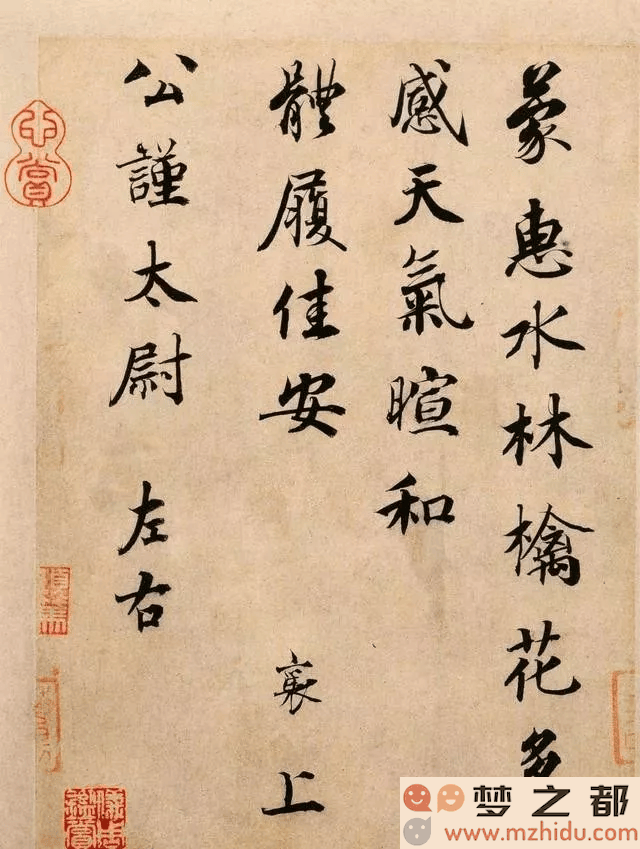 蒙惠水林檎花多
感天氣暄和
體履佳安 襄上
公謹太尉 左右
梦之都
www.mzhidu.com